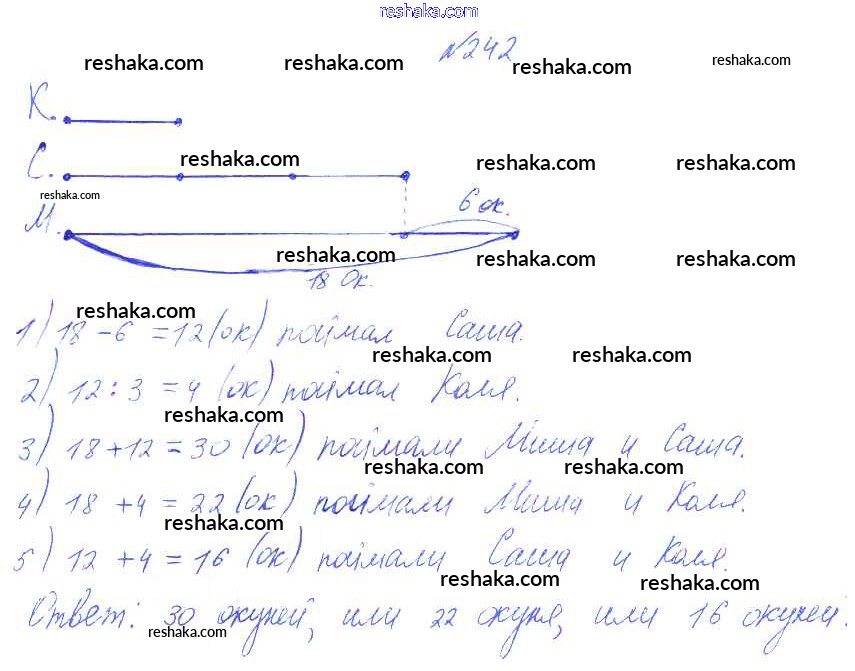 reshaka.com
№242
reshaka.com reshaka.com reshaka.com reshaka.com
К.
reshaka.com reshaka.com reshaka.com
С.
reshaka.com
6 ок.
М.
reshaka.com reshaka.com reshaka.com
18 Ок.
reshaka.com
1) 18 - 6 = 12 (ок) поймал Саша.
reshaka.com reshaka.com
2) 12 : 3 = 4 (ок) поймал Коля.
reshaka.com
3) 18 + 12 = 30 (ок) поймали Миша и Саша.
reshaka.com reshaka.com
4) 18 + 4 = 22 (ок) поймали Миша и Коля.
reshaka.com
5) 12 + 4 = 16 (ок) поймали Саша и Коля.
reshaka.com reshaka.com
Ответ: 30 окуней, или 22 окуня, или 16 окуней.
reshaka.com